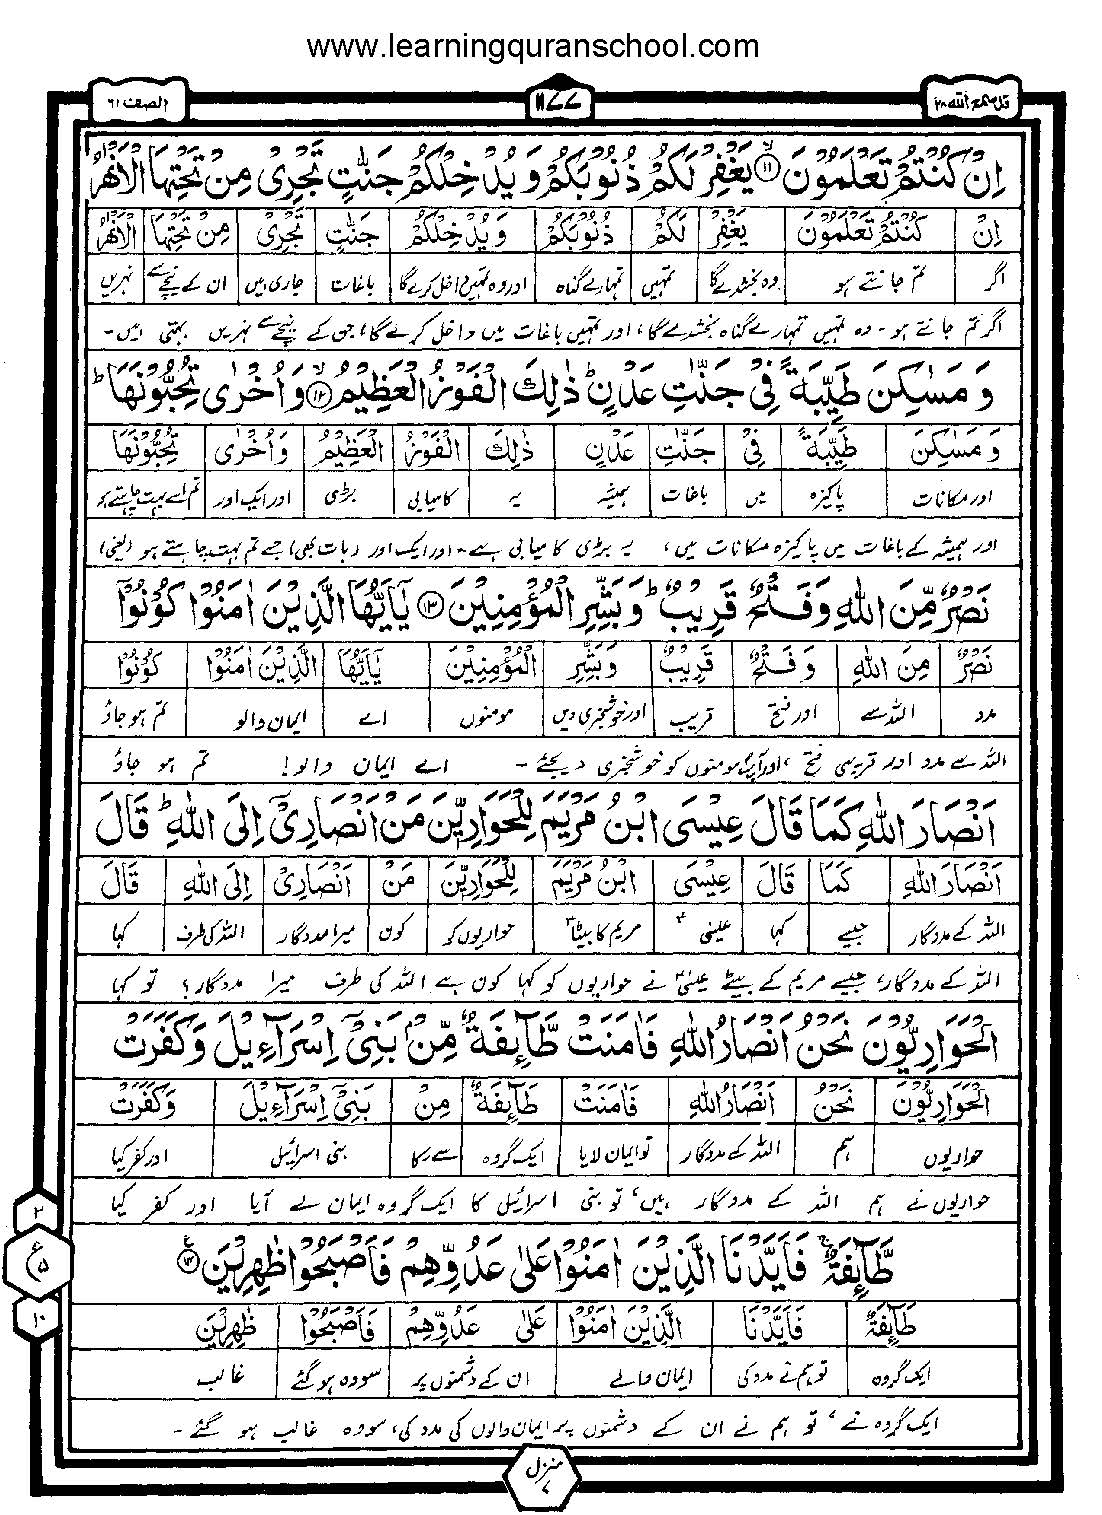 www.learningquranschool.com
قد سمع الله ۲۸ ۱۱۷۷ الصف ۶۱
اِنۡ كُنۡتُمۡ تَعۡلَمُوۡنَ ۙ‏﴿۱۱﴾ يَغۡفِرۡ لَكُمۡ ذُنُوۡبَكُمۡ وَيُدۡخِلۡكُمۡ جَنّٰتٍ تَجۡرِىۡ مِنۡ تَحۡتِهَا الۡاَنۡهٰرُ
اِنۡ كُنۡتُمۡ تَعۡلَمُوۡنَ يَغۡفِرۡ لَكُمۡ ذُنُوۡبَكُمۡ وَيُدۡخِلۡكُمۡ جَنّٰتٍ تَجۡرِىۡ مِنۡ تَحۡتِهَا الۡاَنۡهٰرُ
اگر تم جانتے ہو وہ بخشدے گا تمہیں تمہارے گناہ اور وہ تمہیں داخل کرے گا باغات جاری ہیں ان کے نیچے سے نہریں
اگر تم جانتے ہو۔ وہ تمہیں تمہارے گناہ بخشدے گا، اور تمہیں باغات میں داخل کرے گا، جن کے نیچے سے نہریں بہتی ہیں۔
وَمَسٰكِنَ طَيِّبَةً فِىۡ جَنّٰتِ عَدۡنٍ‌ؕ ذٰلِكَ الۡفَوۡزُ الۡعَظِيۡمُ ۙ‏﴿۱۲﴾ وَاُخۡرٰى تُحِبُّوۡنَهَا‌ ؕ
وَمَسٰكِنَ طَيِّبَةً فِىۡ جَنّٰتِ عَدۡنٍ ذٰلِكَ الۡفَوۡزُ الۡعَظِيۡمُ وَاُخۡرٰى تُحِبُّوۡنَهَا
اور مکانات پاکیزہ میں باغات ہمیشہ یہ کامیابی بڑی اور ایک اور تم اسے بہت چاہتے ہو
اور ہمیشہ کے باغات میں پاکیزہ مکانات میں، یہ بڑی کامیابی ہے۔ اور ایک اور (بات بھی) جسے تم بہت چاہتے ہو (یعنی)
نَصۡرٌ مِّنَ اللّٰهِ وَفَتۡحٌ قَرِيۡبٌ‌ ؕ وَبَشِّرِ الۡمُؤۡمِنِيۡنَ ﴿۱۳﴾ يٰۤاَيُّهَا الَّذِيۡنَ اٰمَنُوۡا كُوۡنُوۡۤا
نَصۡرٌ مِنَ اللّٰهِ وَفَتۡحٌ قَرِيۡبٌ وَبَشِّرِ الۡمُؤۡمِنِيۡنَ يٰۤاَيُّهَا الَّذِيۡنَ اٰمَنُوۡا كُوۡنُوۡۤا
مدد اللہ سے اور فتح قریب اور خوشخبری دیں مومنوں اے ایمان والو تم ہو جاؤ
اللہ سے مدد اور قریبی فتح، اور آپؐ مومنوں کو خوشخبری دیجئے۔ اے ایمان والو! تم ہو جاؤ
اَنۡصَارَ اللّٰهِ كَمَا قَالَ عِيۡسَى ابۡنُ مَرۡيَمَ لِلۡحَوَارِيّٖنَ مَنۡ اَنۡصَارِىۡۤ اِلَى اللّٰهِ‌ؕ قَالَ
اَنۡصَارَ اللّٰهِ كَمَا قَالَ عِيۡسَى ابۡنُ مَرۡيَمَ لِلۡحَوَارِيّٖنَ مَنۡ اَنۡصَارِىۡۤ اِلَى اللّٰهِ قَالَ
اللہ کے مددگار جیسے کہا عیسٰی مریم کا بیٹا حواریوں کو کون میرا مددگار اللہ کی طرف کہا
اللہ کے مددگار، جیسے مریم کے بیٹے عیسٰیؑ نے حواریوں کو کہا کون ہے اللہ کی طرف میرا مددگار؟ تو کہا
الۡحَوَارِيُّوۡنَ نَحۡنُ اَنۡصَارُ اللّٰهِ‌ فَاٰمَنَتۡ طَّآئِفَةٌ مِّنۡۢ بَنِىۡۤ اِسۡرَآءِيۡلَ وَكَفَرَتۡ
الۡحَوَارِيُّوۡنَ نَحۡنُ اَنۡصَارُ اللّٰهِ فَاٰمَنَتۡ طَآئِفَةٌ مِنۡ بَنِىۡۤ اِسۡرَآءِيۡلَ وَكَفَرَتۡ
حواریوں ہم اللہ کے مددگار تو ایمان لایا ایک گروہ سے۔کا بنی اسرائیل اور کفر کیا
حواریوں نے ہم اللہ کے مددگار ہیں، تو بنی اسرائیل کا ایک گروہ ایمان لے آیا اور کفر کیا
طَّآئِفَةٌ‌ ۚ فَاَيَّدۡنَا الَّذِيۡنَ اٰمَنُوۡا عَلٰى عَدُوِّهِمۡ فَاَصۡبَحُوۡا ظٰهِرِيۡنَ ﴿۱۴﴾
طَآئِفَةٌ فَاَيَّدۡنَا الَّذِيۡنَ اٰمَنُوۡا عَلٰى عَدُوِّهِمۡ فَاَصۡبَحُوۡا ظٰهِرِيۡنَ
ایک گروہ تو ہم نے مدد کی ایمان والے ان کے دشمنوں پر سو وہ ہو گئے غالب
ایک گروہ نے، تو ہم نے ان کے دشمنوں پر ایمان والوں کی مدد کی، سو وہ غالب ہو گئے۔
۲
ع ۵
۱۰
منزل ۷